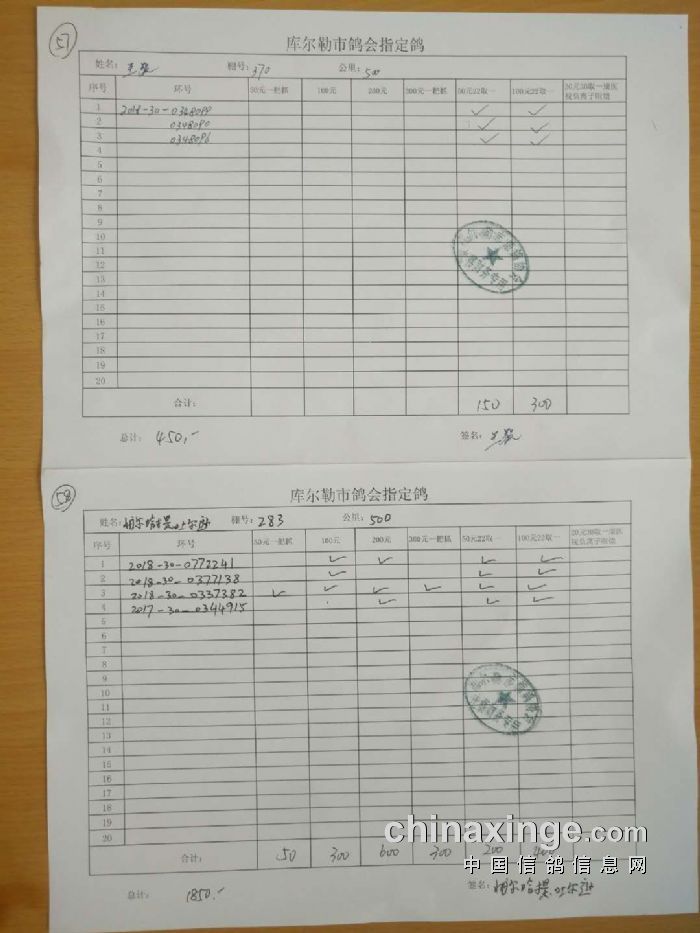 57
库尔勒市鸽会指定鸽
姓名: 棚号: 370 公里: 500
序号 环号 50元一把抓 100元 200元 300元一把抓 50元22取一 100元22取一 50元30取一康医视负离子眼镜
1 2018-30-0348099 ✓ ✓
2 0348090 ✓ ✓
3 0348096 ✓ ✓
4
5
6
7
8
9
10
11
12
13
14
15
16
17
18
19
20
合计: 150 300
总计: 450,- 签名:
58
库尔勒市鸽会指定鸽
姓名: 棚号: 283 公里: 500
序号 环号 50元一把抓 100元 200元 300元一把抓 50元22取一 100元22取一 50元30取一康医视负离子眼镜
1 2018-30-0772241 ✓ ✓ ✓ ✓
2 2018-30-0377138 ✓ ✓ ✓
3 2018-30-0337382 ✓ ✓ ✓ ✓ ✓ ✓
4 2017-30-0344915 ✓ ✓ ✓
5
6
7
8
9
10
11
12
13
14
15
16
17
18
19
20
合计: 50 300 600 300 200
总计: 1850,- 签名:
chinaxinge.com
中国信鸽信息网